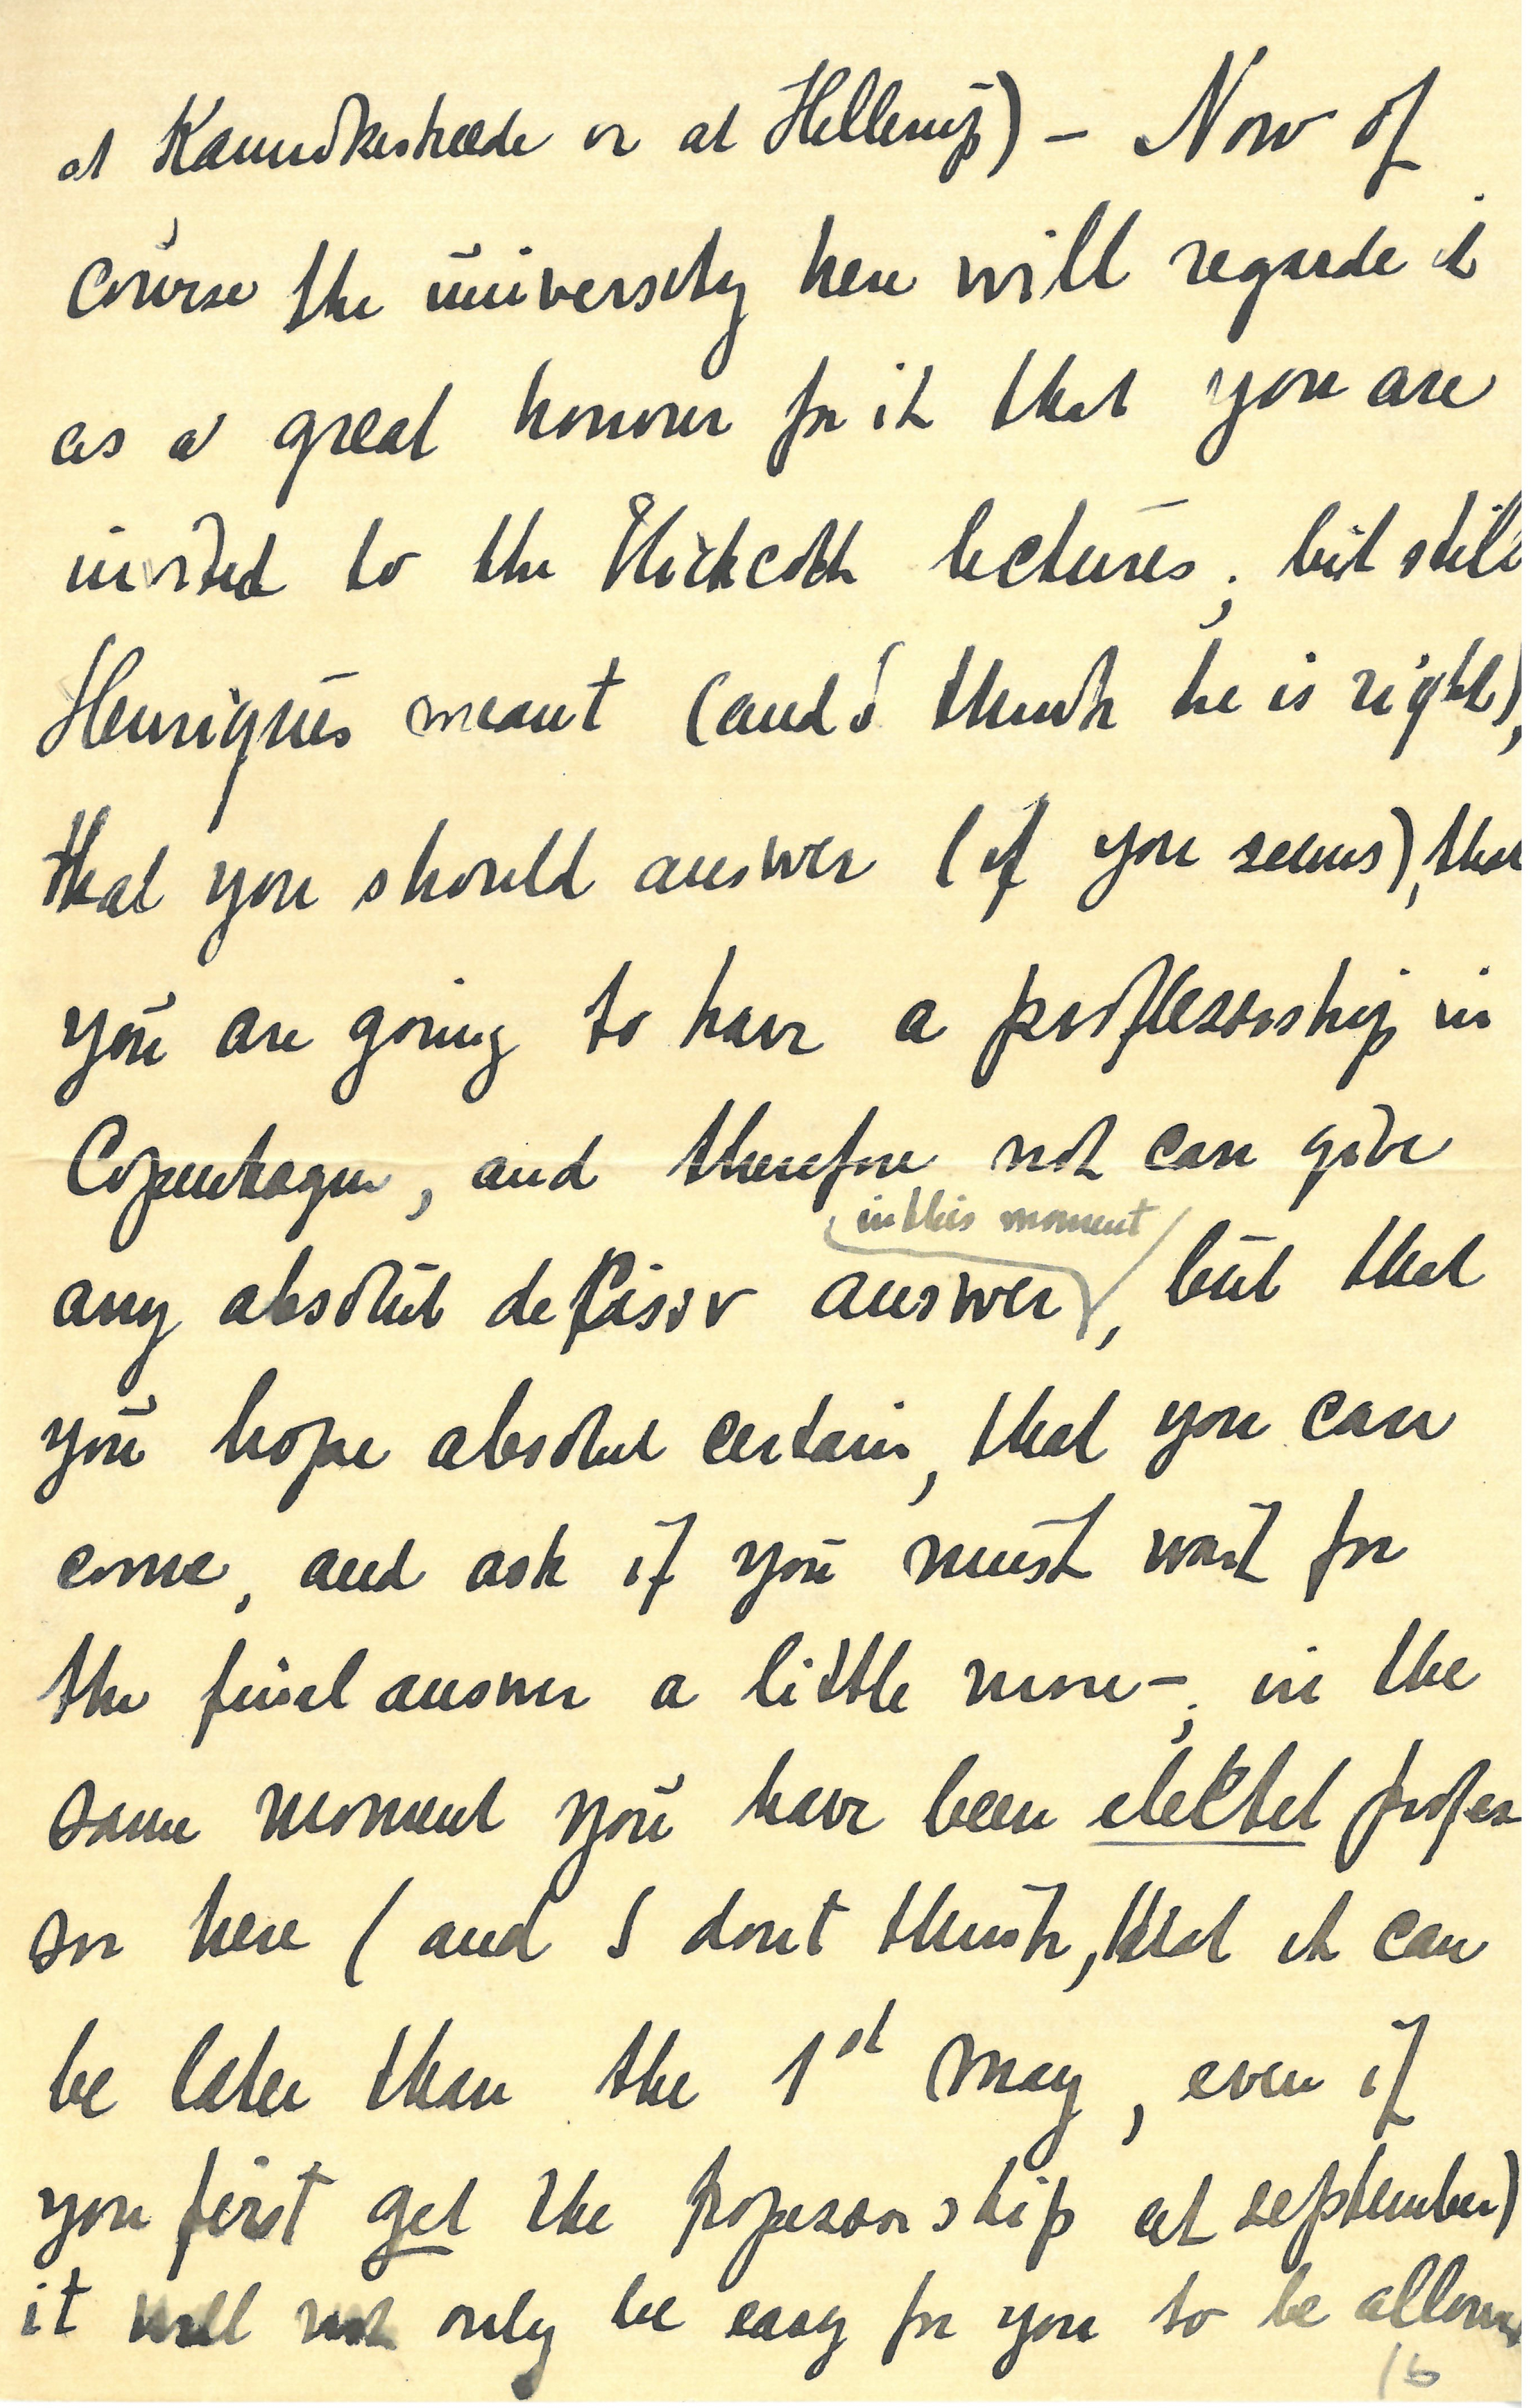 at Kannikestræde or at Hellerup) – Now of
course the university here will regarde it
as a great honour for it that you are
invited to the Hichcoth lectures; but still
Henriques meant (and I think he is right),
that you should answer (if you seems), that
you are going to have a professorship in
Copenhagen, and therefore not can give
in this moment
any absolut decisiv answer, but that
you hope absolut certain, that you can
come, and ask if you must wait for
the final answer a little more –; in the
same moment you have been elected profes
sor here (and I dont think, that it can
be later than the 1st May, even if
you first get the professorship at september)
it will not only be easy for you to be allowed
16